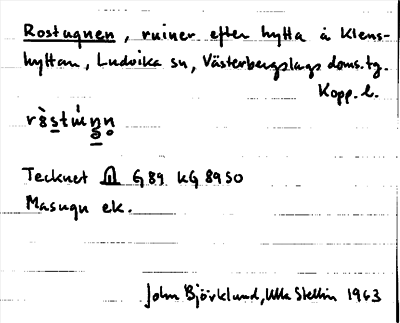 Rostugnen, ruiner efter hytta å Klens-
hyttan, Ludvika sn, Västerbergslags doms.tg.
Kopp. l.
Tecknet G 89 KG 89 SO
Masugn ek.
John Björklund, Ulla Stellin 1963